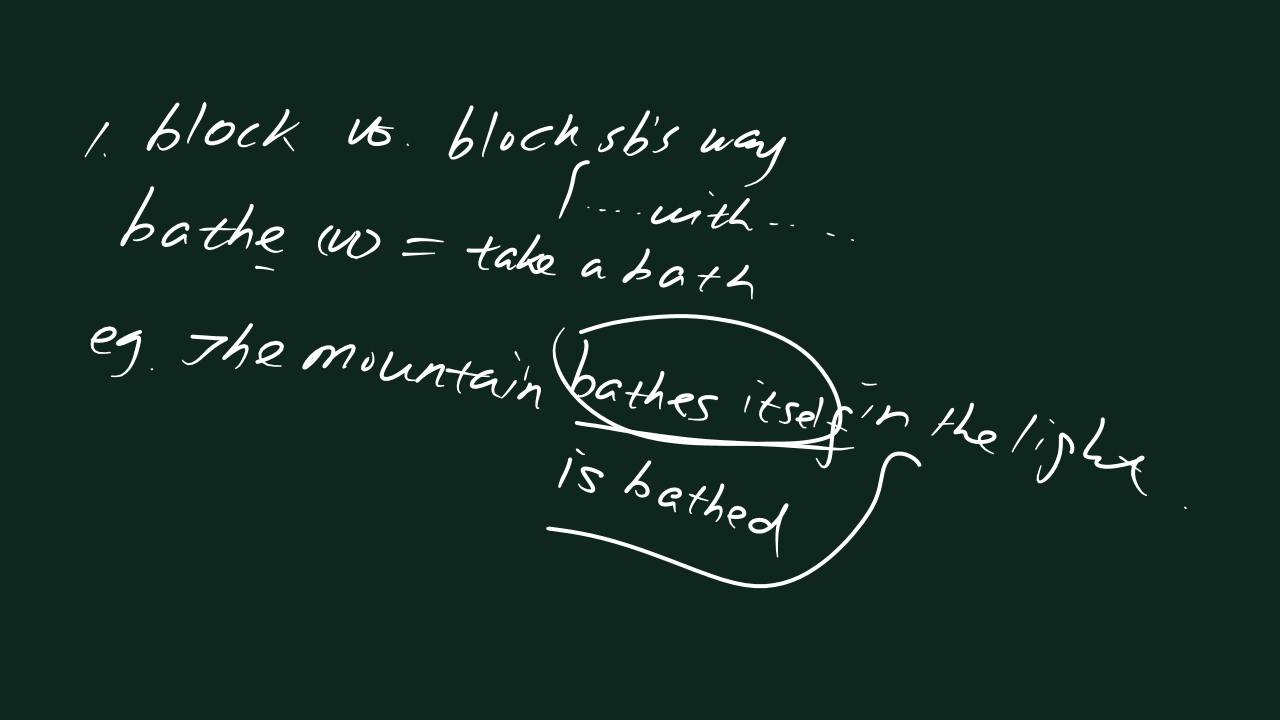 1. block vs. block sb's way
....with.....
bathe (v) = take a bath
eg. The mountain bathes itself in the light.
is bathed